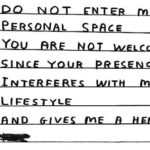 DO NOT ENTER M
PERSONAL SPACE
YOU ARE NOT WELCO
SINCE YOUR PRESEN
INTERFERES WITH M
LIFESTYLE
AND GIVES ME A HE